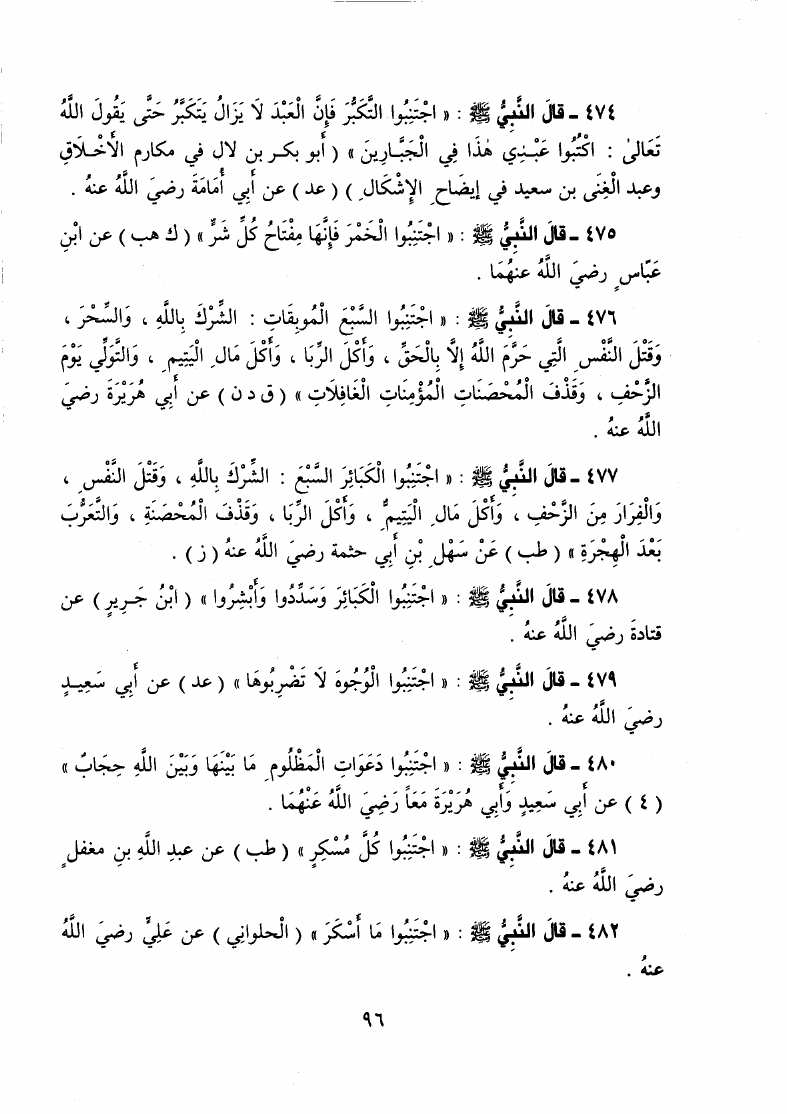 ٤٧٤ - قالَ النَّبِيُّ ﷺ : « اجْتَنِبُوا التَّكَبُّرَ فَإِنَّ الْعَبْدَ لَا يَزَالُ يَتَكَبَّرُ حَتَّى يَقُولَ اللَّهُ
تَعَالىٰ : اكْتُبُوا عَبْدِي هٰذَا فِي الْجَبَّارِينَ » ( أَبو بكر بن لال في مكارم الأَخْلاقِ
وعبد الْغِنَى بن سعيد في إِيضَاحِ الإِشْكَالِ ) ( عد ) عن أَبي أُمَامَةَ رضيَ اللَّهُ عنهُ .
٤٧٥ - قالَ النَّبِيُّ ﷺ : « اجْتَنِبُوا الْخَمْرَ فَإِنَّهَا مِفْتَاحُ كُلِّ شَرٍّ » ( ك هب ) عن ابْنِ
عَبَّاسٍ رضيَ اللَّهُ عنهُمَا .
٤٧٦ - قالَ النَّبِيُّ ﷺ : « اجْتَنِبُوا السَّبْعَ الْمُوبِقَاتِ : الشِّرْكَ بِاللَّهِ ، وَالسِّحْرَ ،
وَقَتْلَ النَّفْسِ الَّتِي حَرَّمَ اللَّهُ إِلاَّ بِالْحَقِّ ، وَأَكْلَ الرِّبَا ، وَأَكْلَ مَالِ الْيَتِيمِ ، وَالتَّوَلِّي يَوْمَ
الزَّحْفِ ، وَقَذْفَ الْمُحْصَنَاتِ الْمُؤْمِنَاتِ الْغَافِلَاتِ » ( ق د ن ) عن أَبي هُرَيْرَةَ رضيَ
اللَّهُ عنهُ .
٤٧٧ - قالَ النَّبِيُّ ﷺ : « اجْتَنِبُوا الْكَبَائِرَ السَّبْعَ : الشِّرْكَ بِاللَّهِ ، وَقَتْلَ النَّفْسِ ،
وَالْفِرَارَ مِنَ الزَّحْفِ ، وَأَكْلَ مَالِ الْيَتِيمِ ، وَأَكْلَ الرِّبَا ، وَقَذْفَ الْمُحْصَنَةِ ، وَالتَّعَرُّبَ
بَعْدَ الْهِجْرَةِ » ( طب ) عَنْ سَهْلِ بْنِ أَبي حثمة رضيَ اللَّهُ عنهُ ( ز ) .
٤٧٨ - قالَ النَّبِيُّ ﷺ : « اجْتَنِبُوا الْكَبَائِرَ وَسَدِّدُوا وَأَبْشِرُوا » ( ابْنُ جَرِيرٍ ) عن
قتادةَ رضيَ اللَّهُ عنهُ .
٤٧٩ - قالَ النَّبِيُّ ﷺ : « اجْتَنِبُوا الْوُجُوهَ لَا تَضْرِبُوهَا » ( عد ) عن أَبي سَعِيدٍ
رضيَ اللَّهُ عنهُ .
٤٨٠ - قالَ النَّبِيُّ ﷺ : « اجْتَنِبُوا دَعَوَاتِ الْمَظْلُومِ مَا بَيْنَهَا وَبَيْنَ اللَّهِ حِجَابٌ »
( ٤ ) عن أَبي سَعِيدٍ وَأَبي هُرَيْرَةَ مَعَاً رَضِيَ اللَّهُ عَنْهُمَا .
٤٨١ - قالَ النَّبِيُّ ﷺ : « اجْتَنِبُوا كُلَّ مُسْكِرٍ » ( طب ) عن عبدِ اللَّهِ بنِ مغفلٍ
رضيَ اللَّهُ عنهُ .
٤٨٢ - قالَ النَّبِيُّ ﷺ : « اجْتَنِبُوا مَا أَسْكَرَ » ( الْحلوانِي ) عن عَلِيٍّ رضيَ اللَّهُ
عنهُ .
٩٦